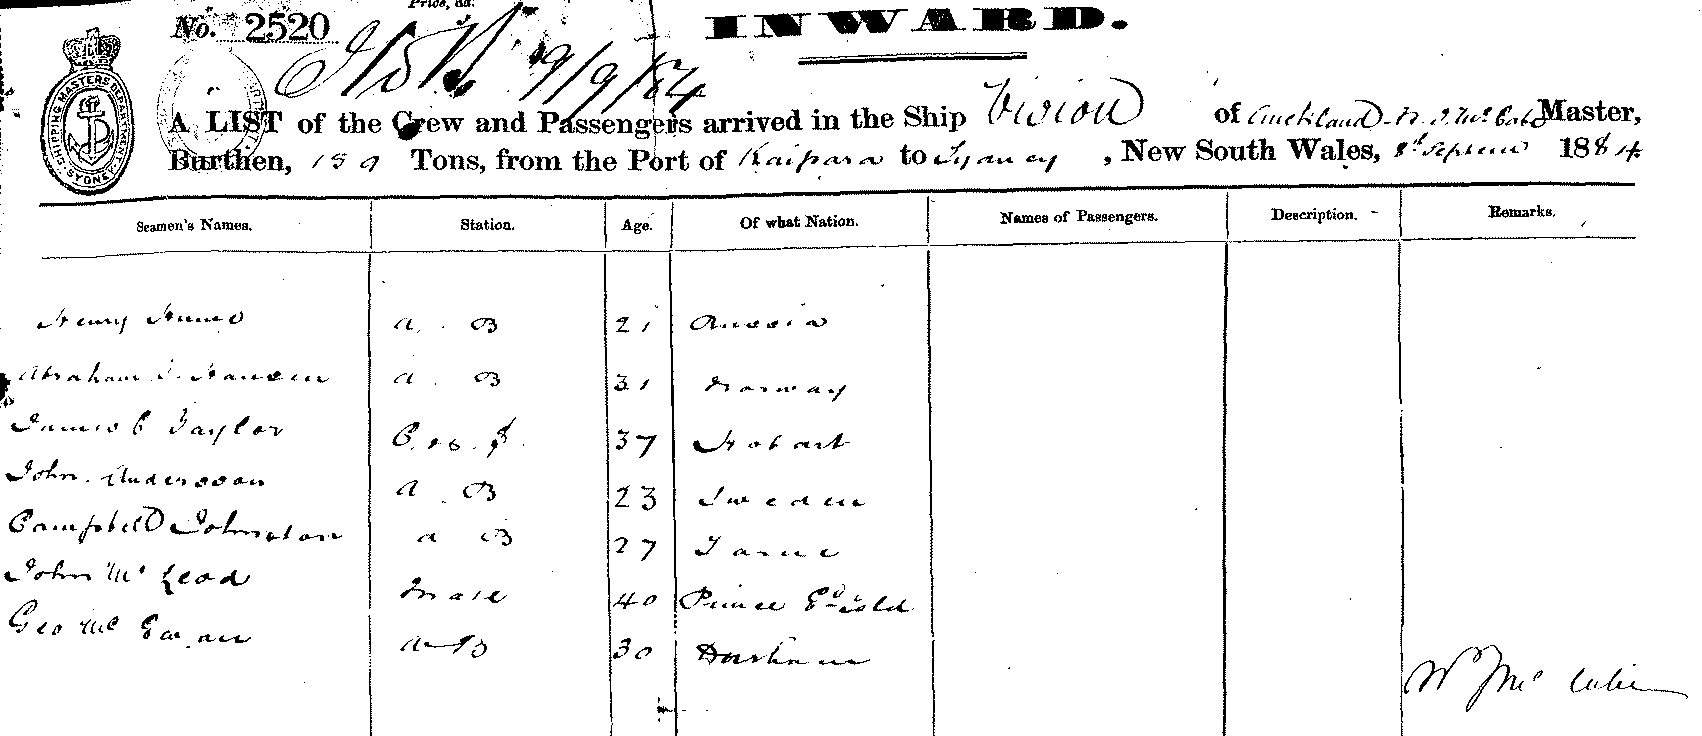 Price, 3d.
No. 2520
INWARD.
9/9/84
SHIPPING MASTERS DEPARTMENT SYDNEY
A LIST of the Crew and Passengers arrived in the Ship Vision of Auckland Master,
Burthen, 159 Tons, from the Port of Kaipara to Sydney, New South Wales, 8th Septem 1884
Seamen's Names. Station. Age. Of what Nation. Names of Passengers. Description. Remarks.
Henry A B 21 Russia
Abraham Hansen A B 31 Norway
James C Taylor 37 Hobart
John Andersson A B 23 Sweden
Campbell Johnston A B 27
John Mc Leod Mate 40 Prince Ed Isld
Geo Mc Ewan A B 30
Wm